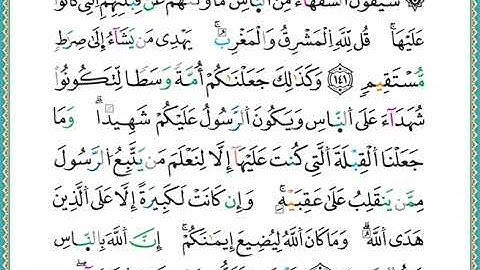 سَيَقُولُ ٱلسُّفَهَآءُ مِنَ ٱلنَّاسِ مَا وَلَّىٰهُمْ عَن قِبْلَتِهِمُ ٱلَّتِى كَانُوا۟
عَلَيْهَا ۚ قُل لِّلَّهِ ٱلْمَشْرِقُ وَٱلْمَغْرِبُ ۚ يَهْدِى مَن يَشَآءُ إِلَىٰ صِرَٰطٍ
مُّسْتَقِيمٍ ١٤١ وَكَذَٰلِكَ جَعَلْنَٰكُمْ أُمَّةً وَسَطًا لِّتَكُونُوا۟
شُهَدَآءَ عَلَى ٱلنَّاسِ وَيَكُونَ ٱلرَّسُولُ عَلَيْكُمْ شَهِيدًا ۗ وَمَا
جَعَلْنَا ٱلْقِبْلَةَ ٱلَّتِى كُنتَ عَلَيْهَآ إِلَّا لِنَعْلَمَ مَن يَتَّبِعُ ٱلرَّسُولَ
مِمَّن يَنقَلِبُ عَلَىٰ عَقِبَيْهِ ۚ وَإِن كَانَتْ لَكَبِيرَةً إِلَّا عَلَى ٱلَّذِينَ
هَدَى ٱللَّهُ ۗ وَمَا كَانَ ٱللَّهُ لِيُضِيعَ إِيمَٰنَكُمْ ۚ إِنَّ ٱللَّهَ بِٱلنَّاسِ